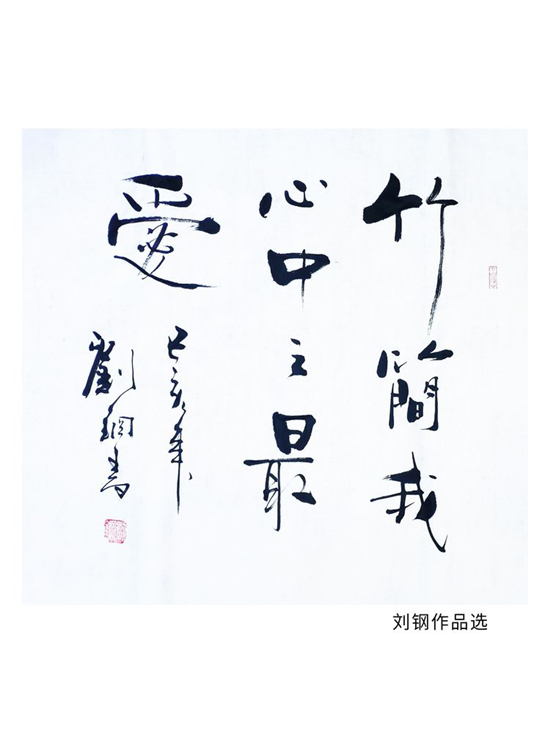 竹簡我
心中之最
愛
己亥年
劉鋼書
刘钢作品选